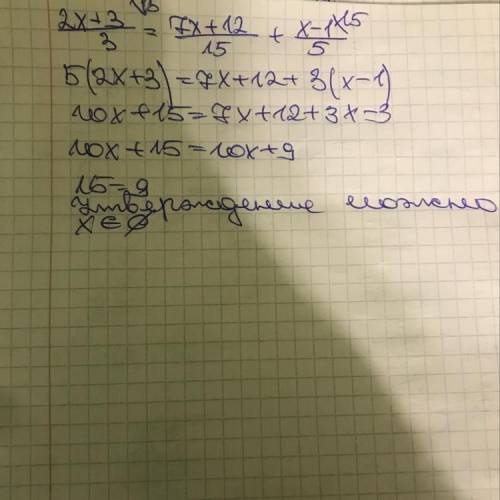 2x+3/3 = 7x+12/15 + x-1/5 |x15
5(2x+3)=7x+12+3(x-1)
10x+15=7x+12+3x-3
10x+15=10x+9
15=9
Утверждение ложно
x∈∅